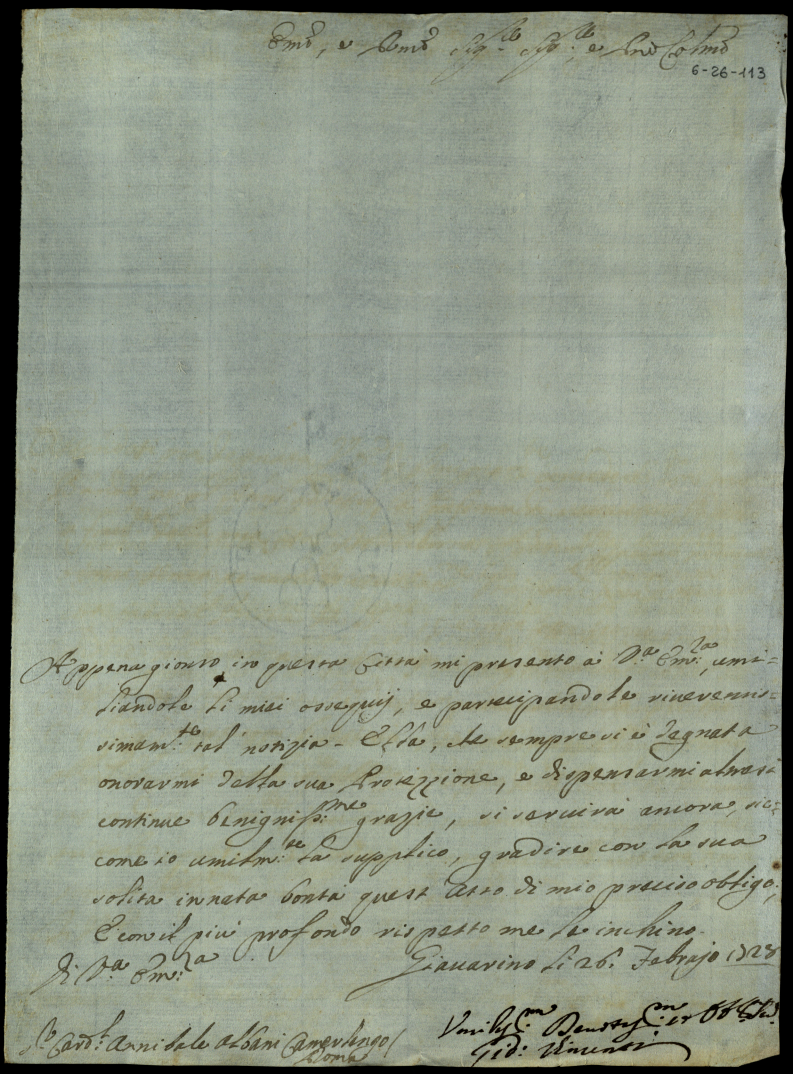 Em̃o, e Rm̃o Sig.re Sig.re, e Pñe Colm̃o
6-26-113
Appena gionto in questa Città mi presento à V.ra Em.za, umi=
liandole li miei ossequij, e partecipandole riverentis=
simam.te tal' notizia. Ella, che sempre si è degnata
onorarmi della sua Protezzione, e dispensarmi altresì
continue benigniss.me grazie, si servirà ancora, sic=
come io umilm.te la supplico, gradire con la sua
solita innata bontà quest' Atto di mio preciso obligo;
E con il più profondo rispetto me le inchino.
Di V.ra Em.za
Giavarino li 26. Febrajo 1728
S.r Card.l Annibale Albani Camerlingo /
Roma
Umiliss.m Devotiss.m et Obb.
Vincenti